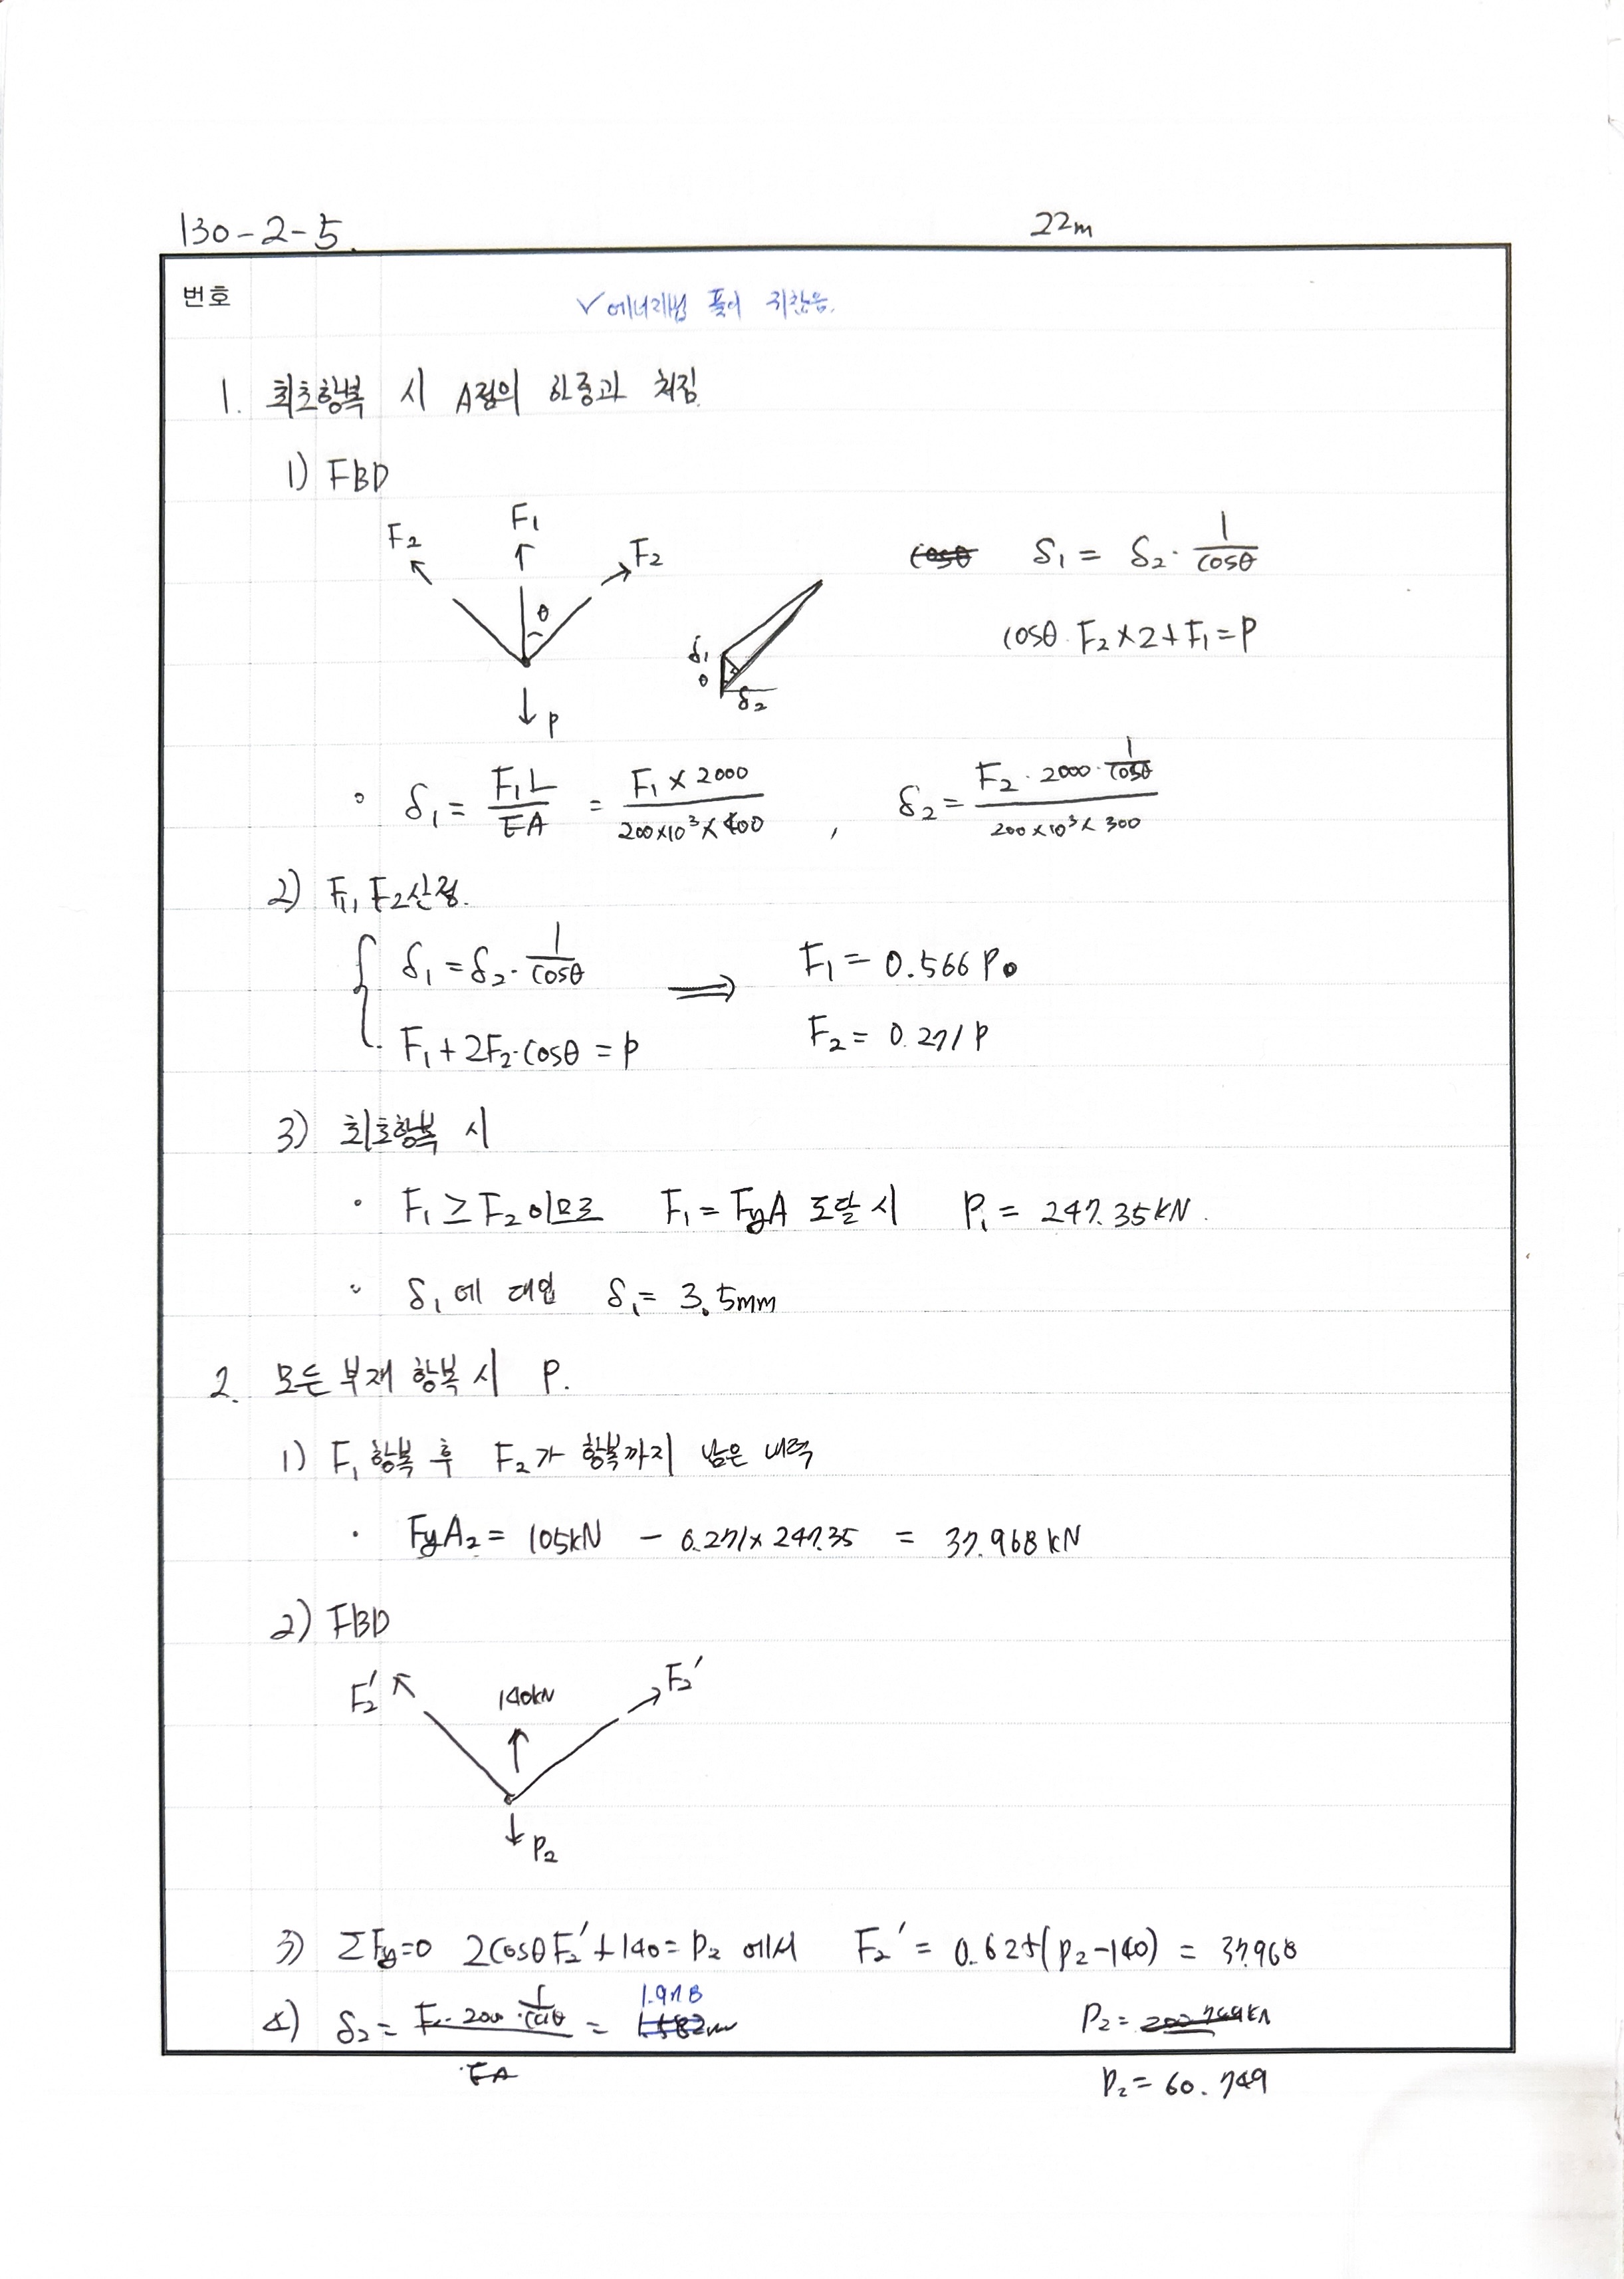 130-2-5.
22m
번호
✓에너지법 풀이 귀찮음.
1. 최초항복 시 A점의 하중과 처짐.
1) FBD
F₂ F₁ F₂
θ
P
δ₁ θ δ₂
δ₁ = δ₂ · 1/cosθ
cosθ · F₂ × 2 + F₁ = P
∘ δ₁ = F₁L/EA = F₁ × 2000/200×10³×400 , δ₂ = F₂ · 2000 · 1/cosθ / 200×10³×300
2) F₁, F₂ 산정.
δ₁ = δ₂ · 1/cosθ ⟹ F₁ = 0.566 P
F₁ + 2F₂ · cosθ = P F₂ = 0.271P
3) 최초항복 시
• F₁ ≥ F₂ 이므로 F₁ = FyA 도달 시 P₁ = 247.35kN.
• δ₁에 대입 δ₁ = 3.5mm
2. 모든 부재 항복 시 P.
1) F₁ 항복 후 F₂가 항복까지 남은 내력
• FyA₂ = 105kN - 0.271×247.35 = 37.968kN
2) FBD
F₂′ 140kN F₂′
P₂
3) ΣFy=0 2cosθF₂′+140=P₂ 에서 F₂′ = 0.625(P₂-140) = 37.968
4) δ₂ = F₂ · 200 · 1/cosθ / EA = 1.978
P₂ = 60.749